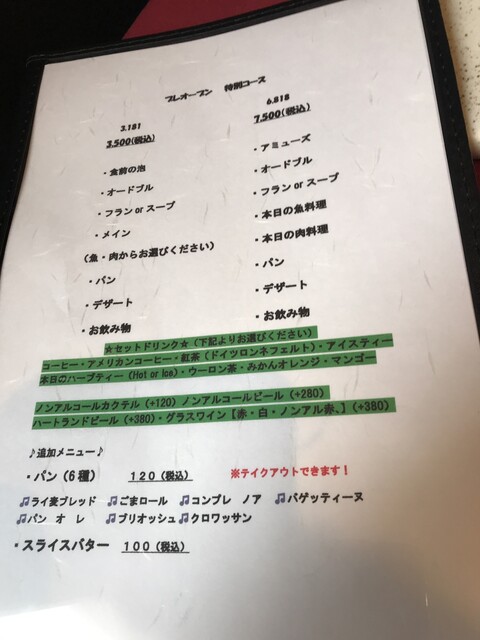 プレオープン　特別コース
3.181
3,500(税込)
・食前の泡
・オードブル
・フラン or スープ
・メイン
(魚・肉からお選びください)
・パン
・デザート
・お飲み物
6.818
7,500(税込)
・アミューズ
・オードブル
・フラン or スープ
・本日の魚料理
・本日の肉料理
・パン
・デザート
・お飲み物
☆セットドリンク☆（下記よりお選びください）
コーヒー・アメリカンコーヒー・紅茶（ドイツロンネフェルト）・アイスティー
本日のハーブティー(Hot or Ice)・ウーロン茶・みかんオレンジ・マンゴー
ノンアルコールカクテル(+120) ノンアルコールビール(+280)
ハートランドビール(+380)・グラスワイン【赤・白・ノンアル赤、】(+380)
♪追加メニュー♪
・パン(6種)　120(税込)　※テイクアウトできます！
🎵ライ麦ブレッド　🎵ごまロール　🎵コンプレ　ノア　🎵バゲッティーヌ
🎵パン　オ　レ　🎵ブリオッシュ🎵クロワッサン
・スライスバター　100(税込)